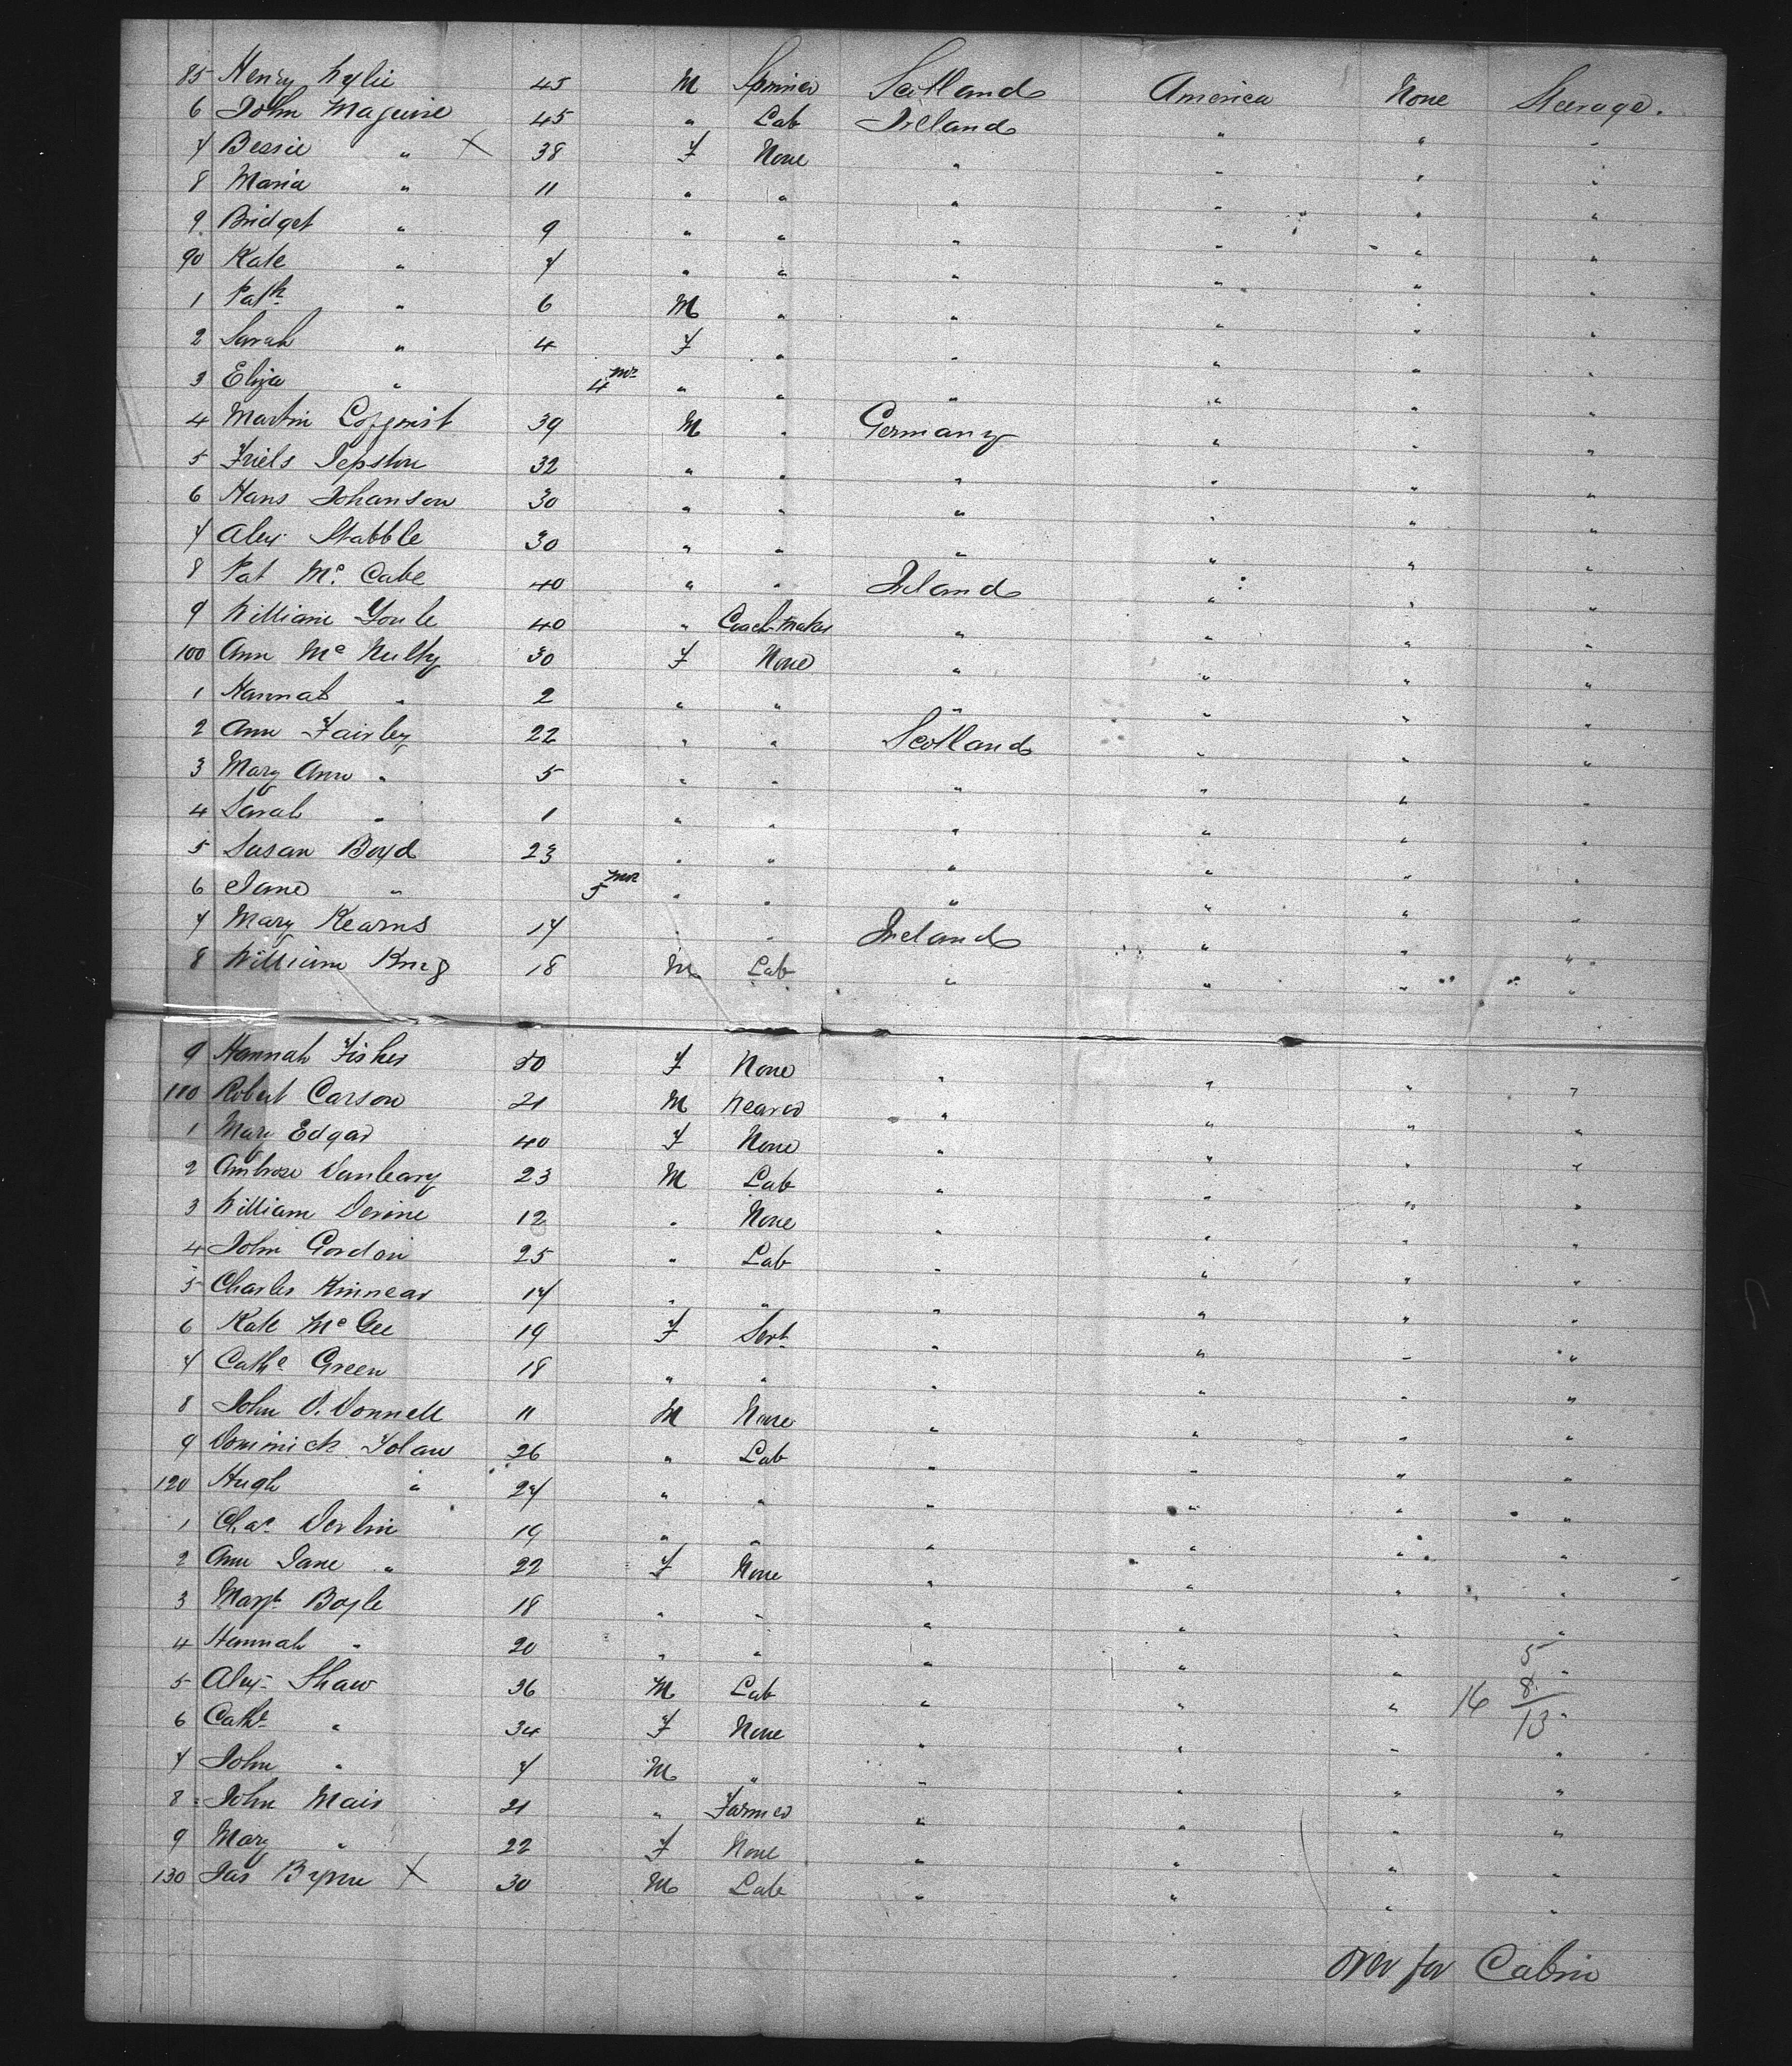 85 Henry Wylie 45 M Spinner Scotland America None Steerage.
6 John Maguire 45 " Lab Ireland " " "
7 Bessie " X 38 F None " " " "
8 Maria " 11 " " " " " "
9 Bridget " 9 " " " " " "
90 Kate " 7 " " " " " "
1 Patk " 6 M " " " " "
2 Sarah " 4 F " " " " "
3 Eliza " 4 mos " " " " " "
4 Martin 39 M " Germany " " "
5 Jepston 32 " " " " " "
6 Hans Johanson 30 " " " " " "
7 Alex Stabble 30 " " " " " "
8 Pat Mc Cabe 40 " " Ireland " " "
9 William 40 " Coach Maker " " " "
100 Ann Mc Nulty 30 F None " " " "
1 Hannah " 2 " " " " " "
2 Ann Fairley 22 " " Scotland " " "
3 Mary Ann " 5 " " " " " "
4 Sarah " 1 " " " " " "
5 Susan Boyd 23 " " " " " "
6 Jane " 5 mos " " " " " "
7 Mary Kearns 17 " " Ireland " " "
8 William King 18 M Lab " " " "
9 Hannah Fisher 50 F None " " " "
110 Robert Carson 21 M Weaver " " " "
1 Mary Edgar 40 F None " " " "
2 Ambrose 23 M Lab " " " "
3 William Devine 12 " None " " " "
4 John Gordon 25 " Lab " " " "
5 Charles Kinnear 17 " " " " " "
6 Kate Mc Gee 19 F Servt " " " "
7 Cathe Green 18 " " " " " "
8 John O'Donnell 11 M None " " " "
9 Dominick Folan 26 " Lab " " " "
120 Hugh " 27 " " " " " "
1 Chas Devlin 19 " " " " " "
2 Ann Jane " 22 F None " " " "
3 Margt Boyle 18 " " " " " "
4 Hannah " 20 " " " " " " 5
5 Alex Shaw 36 M Lab " " " " 16 8
6 Cathe " 34 F None " " " " 13
7 John " 7 M " " " " "
8 John Mair 21 " Farmer " " " "
9 Mary " 22 F None " " " "
130 Jas Byrne X 30 M Lab " " " "
over for Cabin